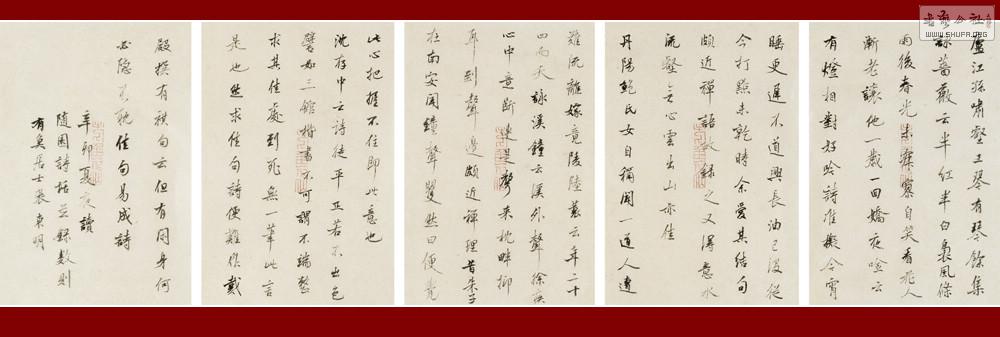 盧江孫嘯壑又琴有琴餘集
詠薔薇云半紅半白裊風條
雨後春光未寂寥自笑看花人
漸老讓他一歲一回嬌夜吟云
有燈相對好吟詩准擬今宵
睡更遲不道興長油已沒從
今打點未乾時余愛其結句
頗近禪語故錄之又得意水
流壑無心雲出山亦佳
丹陽鮑氏女自稱聞一道人遭
難流離嫁竟陵陸羲云年二十
四而夭詠溪鐘云溪外聲徐疾
心中意斷連是聲來枕畔抑
耳到聲邊頗近禪理昔朱子
在南安聞鐘聲矍然曰便覺
此心把握不住即此意也
沈存中云詩徒平正若不出色
譬如三館楷書不可謂不端整
求其佳處到死無一筆此言
是也然求佳句詩便難作戴
殿撰有祺句云但有同身何
必隱苦耽佳句易成詩
辛卯夏夜讀
隨園詩話並錄數則
有矣居士裴東明
WWW.SHUFA.ORG